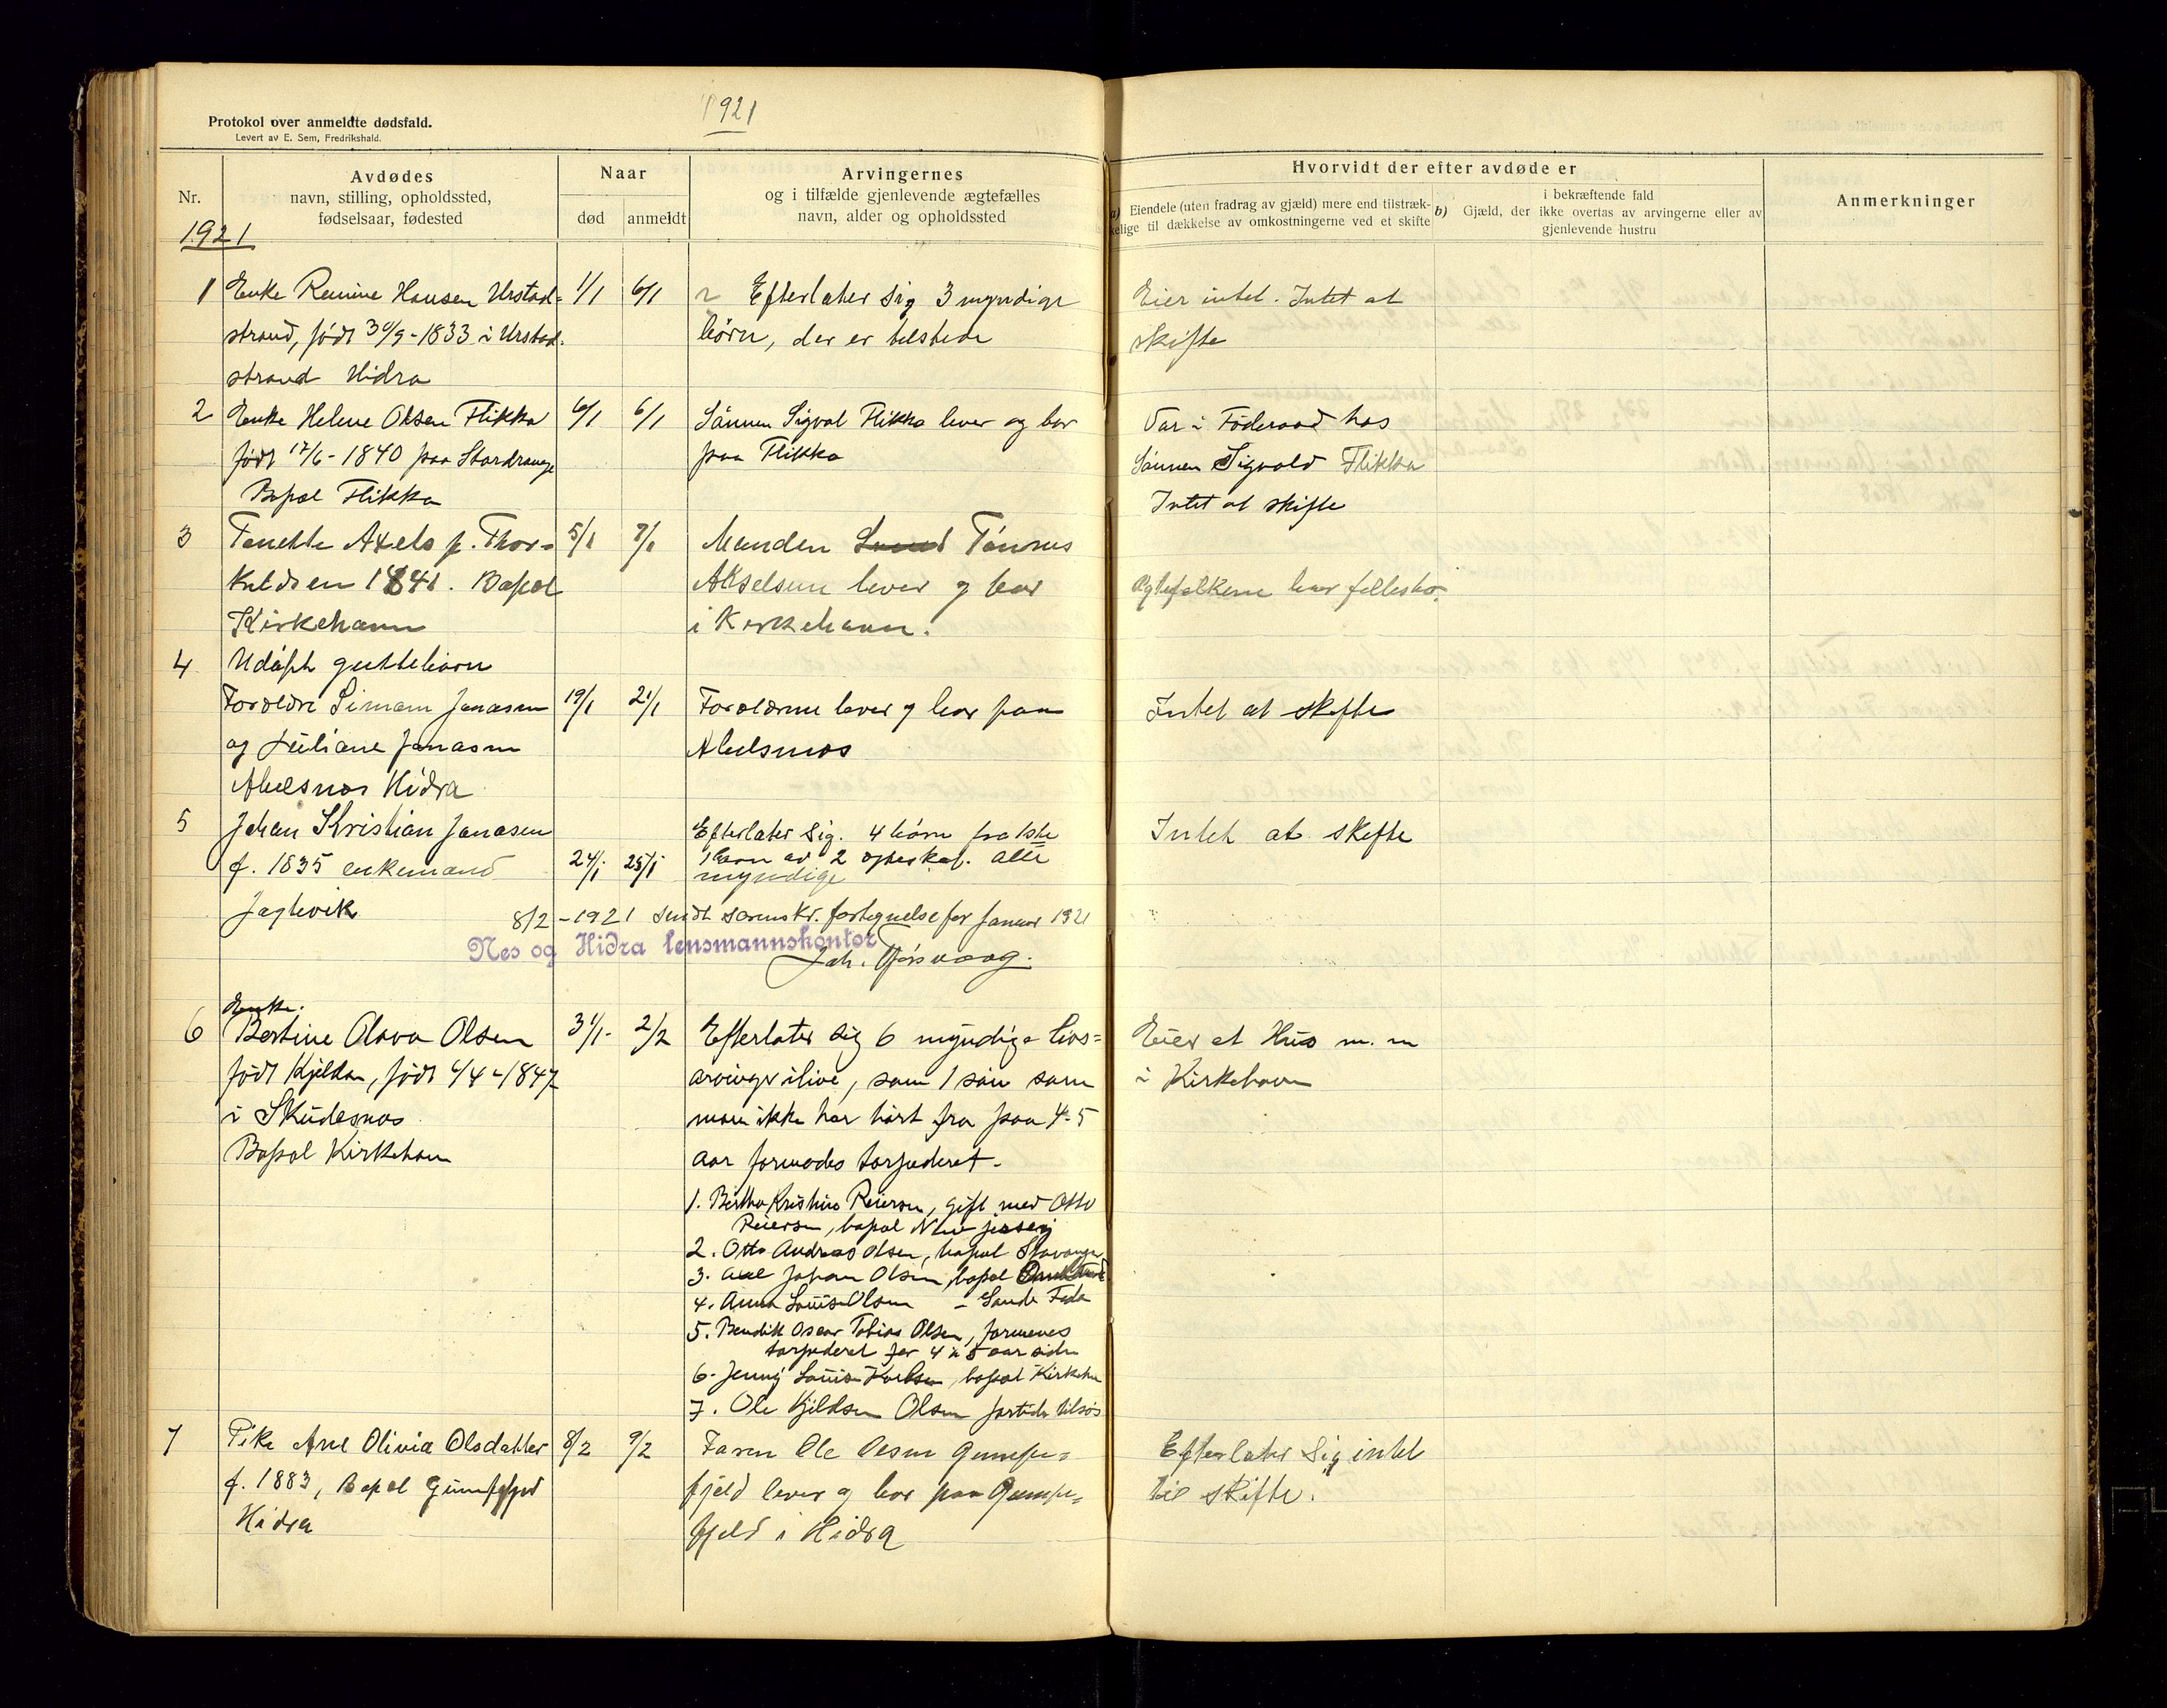 1921
Protokol over anmeldte dødsfald.
Levert av E. Sem, Fredrikshald.
Nr.
Avdødes
navn, stilling, opholdssted,
fødselsaar, fødested
Naar
død
anmeldt
Arvingernes
og i tilfælde gjenlevende ægtefælles
navn, alder og opholdssted
Hvorvidt der efter avdøde er
a) Eiendele (uten fradrag av gjæld) mere end tilstræk-
kelige til dækkelse av omkostningerne ved et skifte
b) Gjæld, der i bekræftende fald
ikke overtas av arvingerne eller av
gjenlevende hustru
Anmerkninger
1921
1 Enke Hansen Urstad= 1/1 6/1 Efterlater sig 3 myndige Eier intet. Intet at
strand, født 30/9-1833 i Urstad. börn, der er tilstede skifte
strand Hidra
2 Enke Helene Olsen Flikka 6/1 6/1 Sönnen Sigval Flikka lever og bor Var i Föderaad hos
født 17/6-1840 paa Stordrange paa Flikka Sönnen Sigvald Flikka
Bopæl Flikka Intet at skifte
3 Tenette Axels f. Thor= 5/1 7/1 Manden Tönnes
keldsen 1841. Bopæl Akselsen lever og bor Ægtefolkene har fellesbo.
Kirkehavn i Kirkehavn.
4 Udöpt guttebarn
Foreldre Simon Jonasen 19/1 21/1 Foreldrene lever og bor paa Intet at skifte
og Juliane Jonasen Abelsnes
Abelsnes Hidra
5 Johan Kristian Jonasen Efterlater sig. 4 börn fra 1ste Intet at skifte
f. 1835 enkemand 24/1 25/1 1 barn av 2 egteskap. alle
myndige
8/2-1921 sendt sorenskr. fortegnelse for Januar 1921
Nes og Hidra lensmannskontor
6 Enke.
Bertine Olava Olsen 31/1- 2/2 Efterlater sig 6 myndige livs= Eier et Hus m. m
født Kjeldsen, født 4/4-1847 arvinger ilive, som 1 sön som i Kirkehavn
i Skudesnes man ikke har hört fra paa 4-5
Bopæl Kirkehavn aar formodes torpederet.
1. Bertha Kristine Reiersen, gift med Otto
Reiersen, bopæl New jersey
2. Otto Andreas Olsen, bopæl Stavanger
3. Axel Johan Olsen, bopæl
4. Anna Louise Olsen - Sande Feda
5. Bendik Oscar Tobias Olsen, formenes
torpederet for 4 à 5 aar siden
6. Jenny Louise Karlsen, bopæl Kirkehn
7. Ole Kjeldsen Olsen fortiden tilsös
7 Pike Ane Olivia Olsdatter 8/2 9/2 Faren Ole Olsen Gumpe= Efterlater sig intet
f. 1883, Bopæl Gumpefjeld fjeld lever og bor paa Gumpe= til skifte.
Hidra fjeld i Hidra